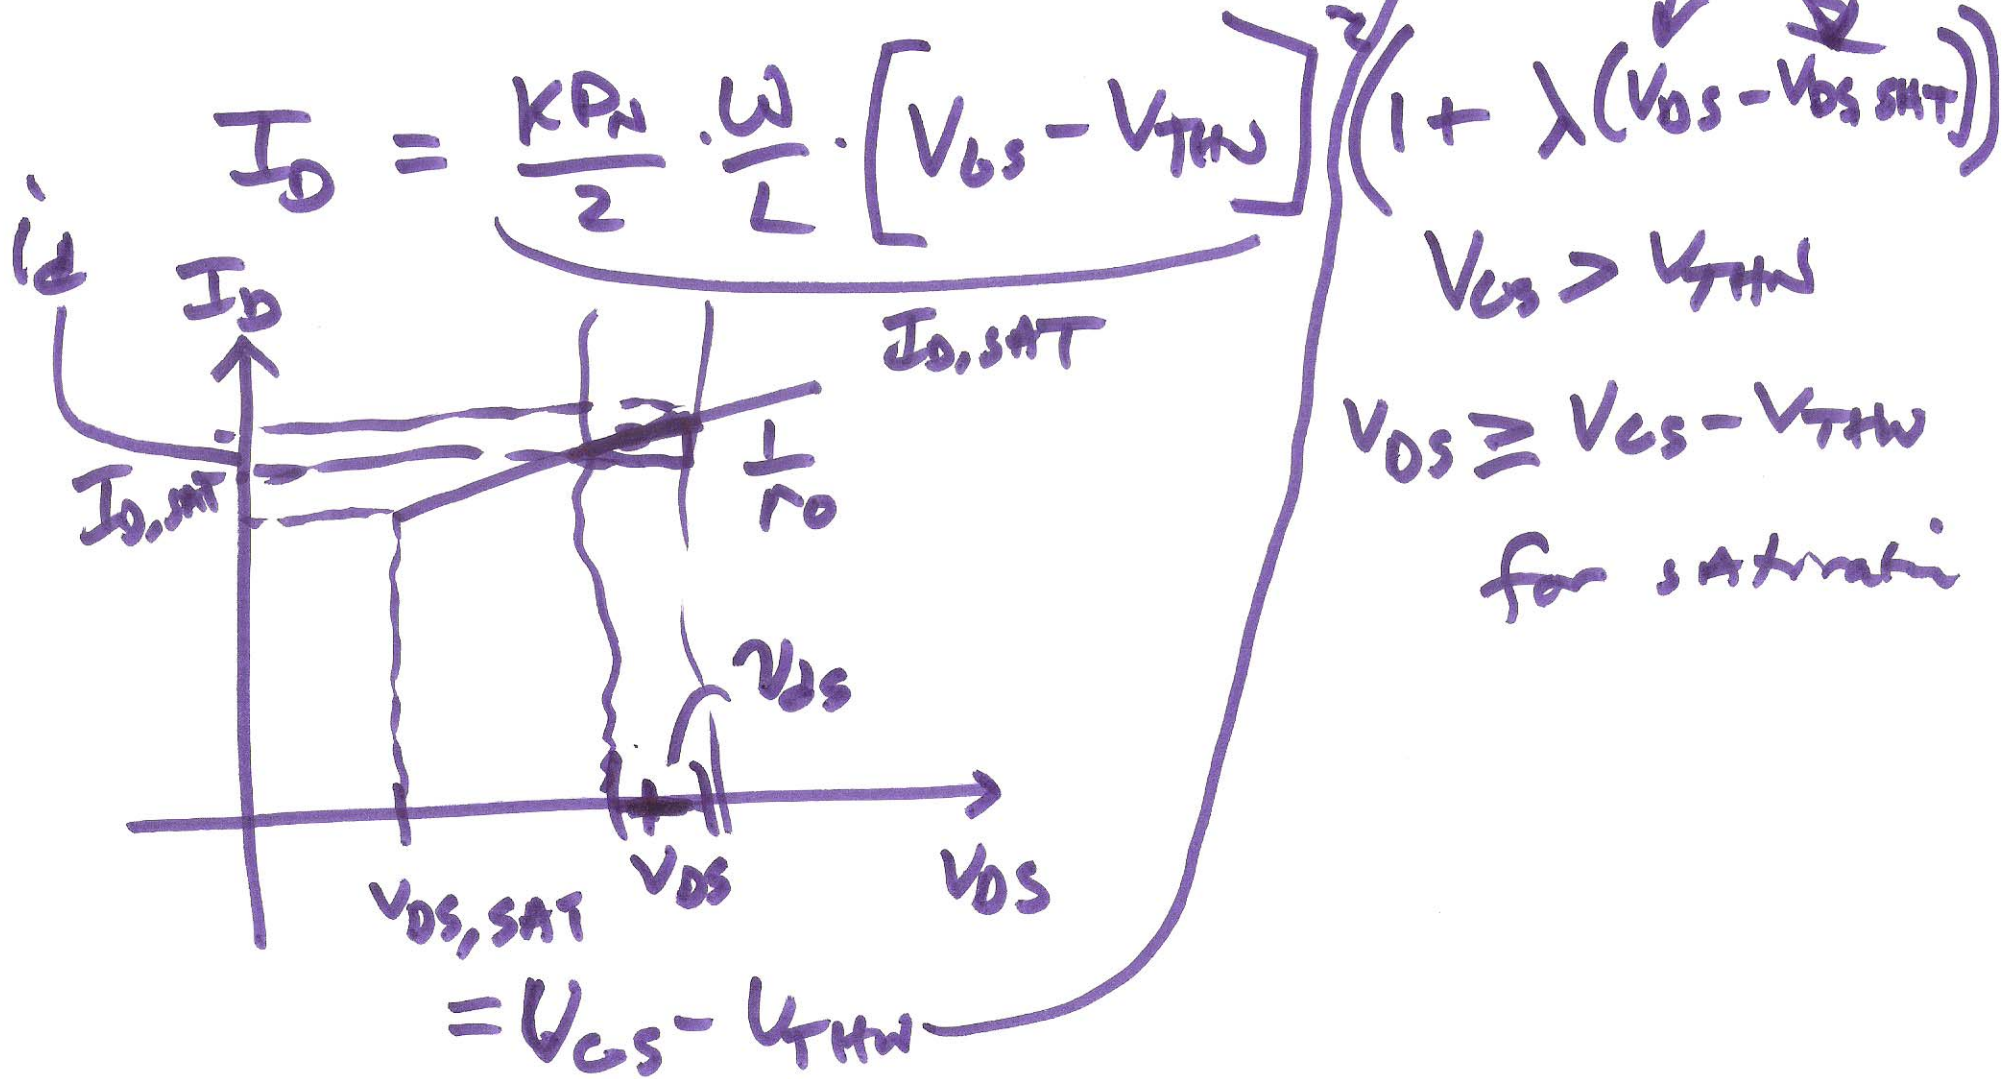 I_D = KP_N/2 · W/L · [V_GS - V_THN]² (1 + λ(V_DS - V_DS,SAT))
I_D,SAT
V_GS > V_THN
V_DS ≥ V_GS - V_THN
for saturation
i_d
I_D
I_D,SAT
1/r_o
v_ds
V_DS
V_DS
V_DS,SAT
= V_GS - V_THN